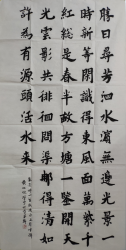 勝日尋芳泗水濱無邊光景一
時新等閒識得東風面萬紫千
紅總是春半畝方塘一鑒開天
光雲影共徘徊問渠那得清如
許為有源頭活水來